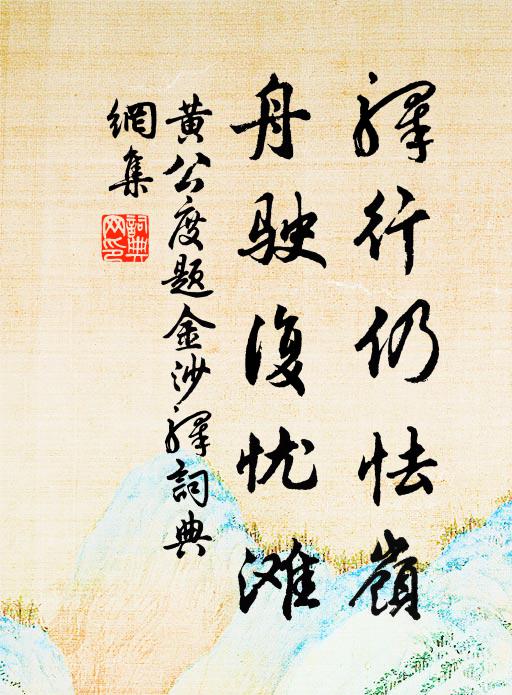 驛行仍怯嶺
舟駛復忧滩
黄公度题金沙驛詞典
網集
詞典
网印